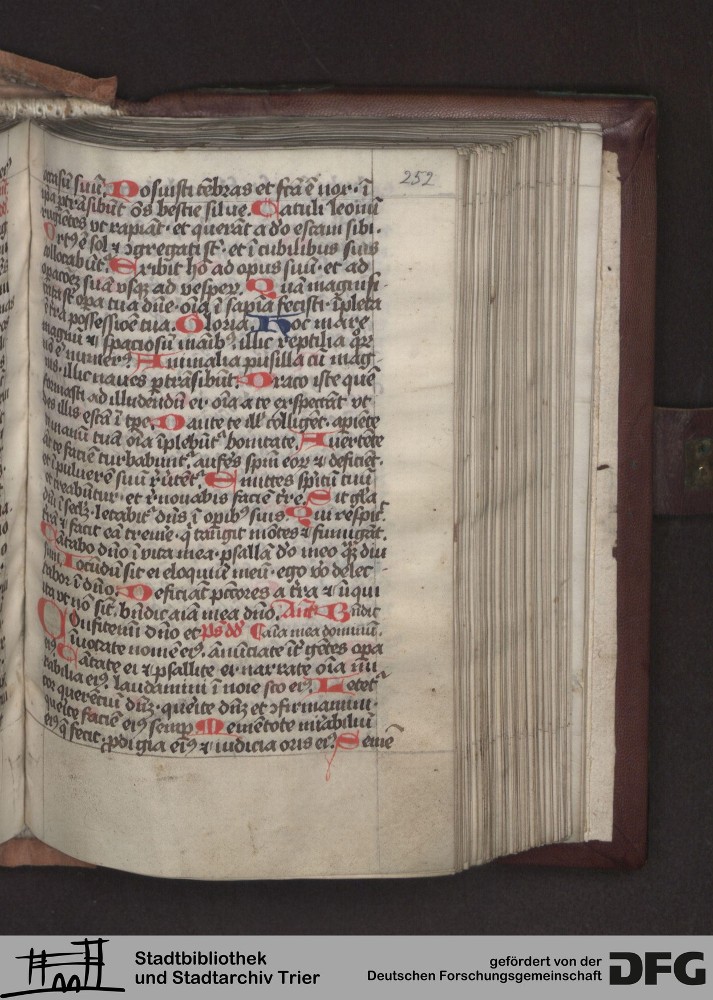 252
occasū suū. Posuisti tēbras et fcā ē nox · ī
ipa ptrāsibūt oēs bestie silue. Catuli leonū
rugiētes ut rapiant · et querāt a do escam sibi.
Ortus ē sol et ꝯgregati sūt · et ī cubilibus suis
collocabūt. Exibit hō ad opus suū · et ad
opacōez suā usqz ad vesperū. Quā magnifi-
cata sūt opa tua dūe · oīa ī sapīa fecisti · īpleta
ē tra possessiōe tua. Gloria. Hoc mare
magnū et spaciosū māibꝰ · illic reptilia qͦr
nō ē numerꝰ. Animalia pusilla cū mag-
nis · illic naues ptrāsibūt. Draco iste quē
formasti ad illudendū ei · oīa a te exspectāt ut
des illis escā ī tpe. Dante te ill' colliget · apiēte
te manū tuā oīa īplebūt' bonitate. Auertēte
at te faciē turbabunt' · aufes spm eoꝝ et deficiēt ·
et ī puluerē suū rūtēt'. Emittes spm tuū
et creabūtur · et rnouabis faciē tre. Sit gla
dnī ī secl'z · letabit' dns ī opibꝰ suis. Qui respic'
trā et facit eā treme · q tangit mōtes et fumigāt.
Cātabo dno ī uita mea · psallā do meo qz diu
sum. Jocūdū sit ei eloquiū meū · ego vo delec-
tabor ī dno. Deficiāt pctores a tra et īiqui
ita ut nō sīt · bndic aīa mea dno. Añ Bndic
Cōnfitemī dno et ps dd Caīa mea domino.
īuocate nomē eꝰ · annūciate īt' gētes opa
eiꝰ. Cātate ei et psallite ei · narrate oīa mi-
rabilia eiꝰ · laudamini ī noīe scō eiꝰ. Letet'
cor querentiū dnz · querite dnz et ꝯfirmamini ·
querite faciē eiꝰ semp. Mementote mirabiliū
eiꝰ q fecit · pdigia eiꝰ et iudicia oris eiꝰ. Semē
Stadtbibliothek
und Stadtarchiv Trier
gefördert von der
Deutschen Forschungsgemeinschaft
DFG